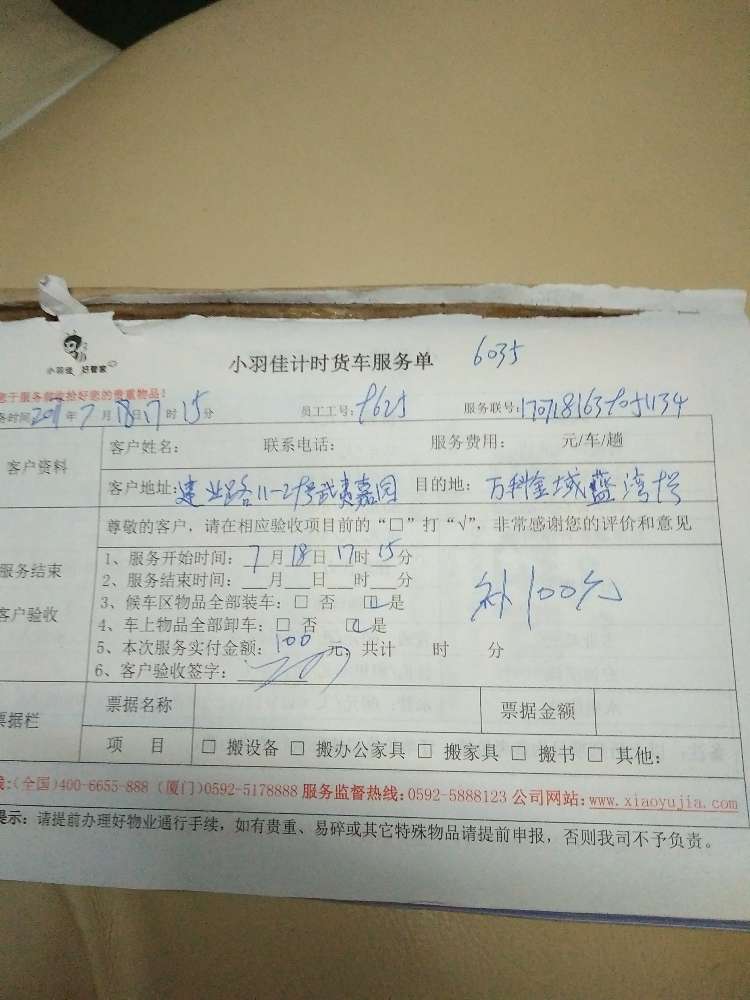 小羽佳 好管家
小羽佳计时货车服务单 6035
服务前请收拾好您的贵重物品!
时间 2017年7月18日17时15分 员工工号: 服务联号:
客户资料 客户姓名: 联系电话: 服务费用: 元/车/趟
客户地址:建业路11-2号 嘉园 目的地: 万科金域蓝湾
尊敬的客户，请在相应验收项目前的“□”打“√”，非常感谢您的评价和意见
服务结束
客户验收
1、服务开始时间: 7月18日17时15分
2、服务结束时间: 月 日 时 分
补100元
3、候车区物品全部装车: □ 否 □ 是
4、车上物品全部卸车: □ 否 □ 是
5、本次服务实付金额: 100 元，共计 时 分
6、客户验收签字:
票据栏 票据名称 票据金额
项 目 □ 搬设备 □ 搬办公家具 □ 搬家具 □ 搬书 □ 其他:
线:(全国)400-6655-888 (厦门)0592-5178888 服务监督热线:0592-5888123 公司网站:www.xiaoyujia.com
提示: 请提前办理好物业通行手续，如有贵重、易碎或其它特殊物品请提前申报，否则我司不予负责。